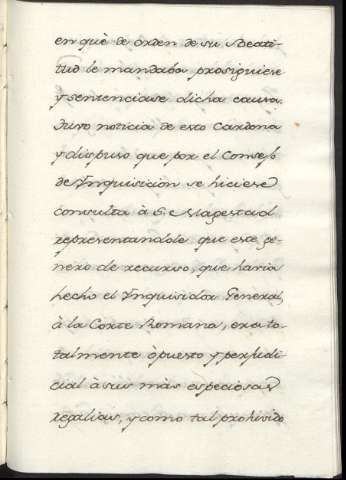 en què de órden de su Beati-
tud le mandaba prosiguiese
y sentenciase dicha causa.
Tuvo noticia de esto Cardona
y dispuso que por el Consejo
de Ynquisicion se hiciese
consulta à S. Magestad
representandole que este ge-
nero de recurso, que havia
hecho el Ynquisidor General,
à la Corte Romana, era to-
talmente òpuesto y perjudi-
cial à sus màs especiosas
regalias, y como tal prohivido